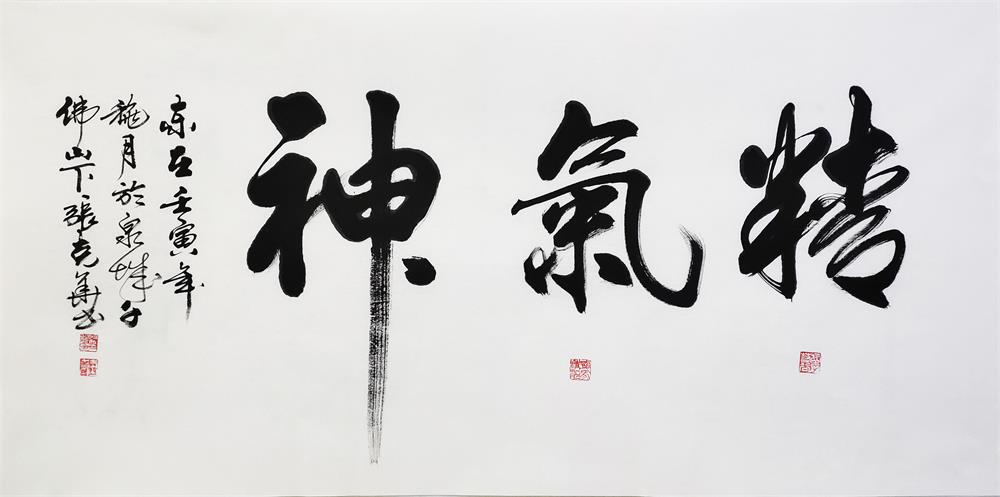 精氣神
歲在壬寅年
龍月於泉城千
佛山下張克軍書